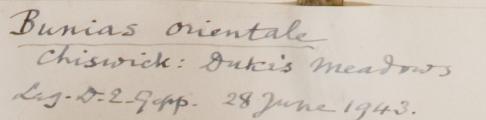 Bunias orientale
Chiswick: Duke's Meadows
Leg. D. E. Gepp. 28 June 1943.